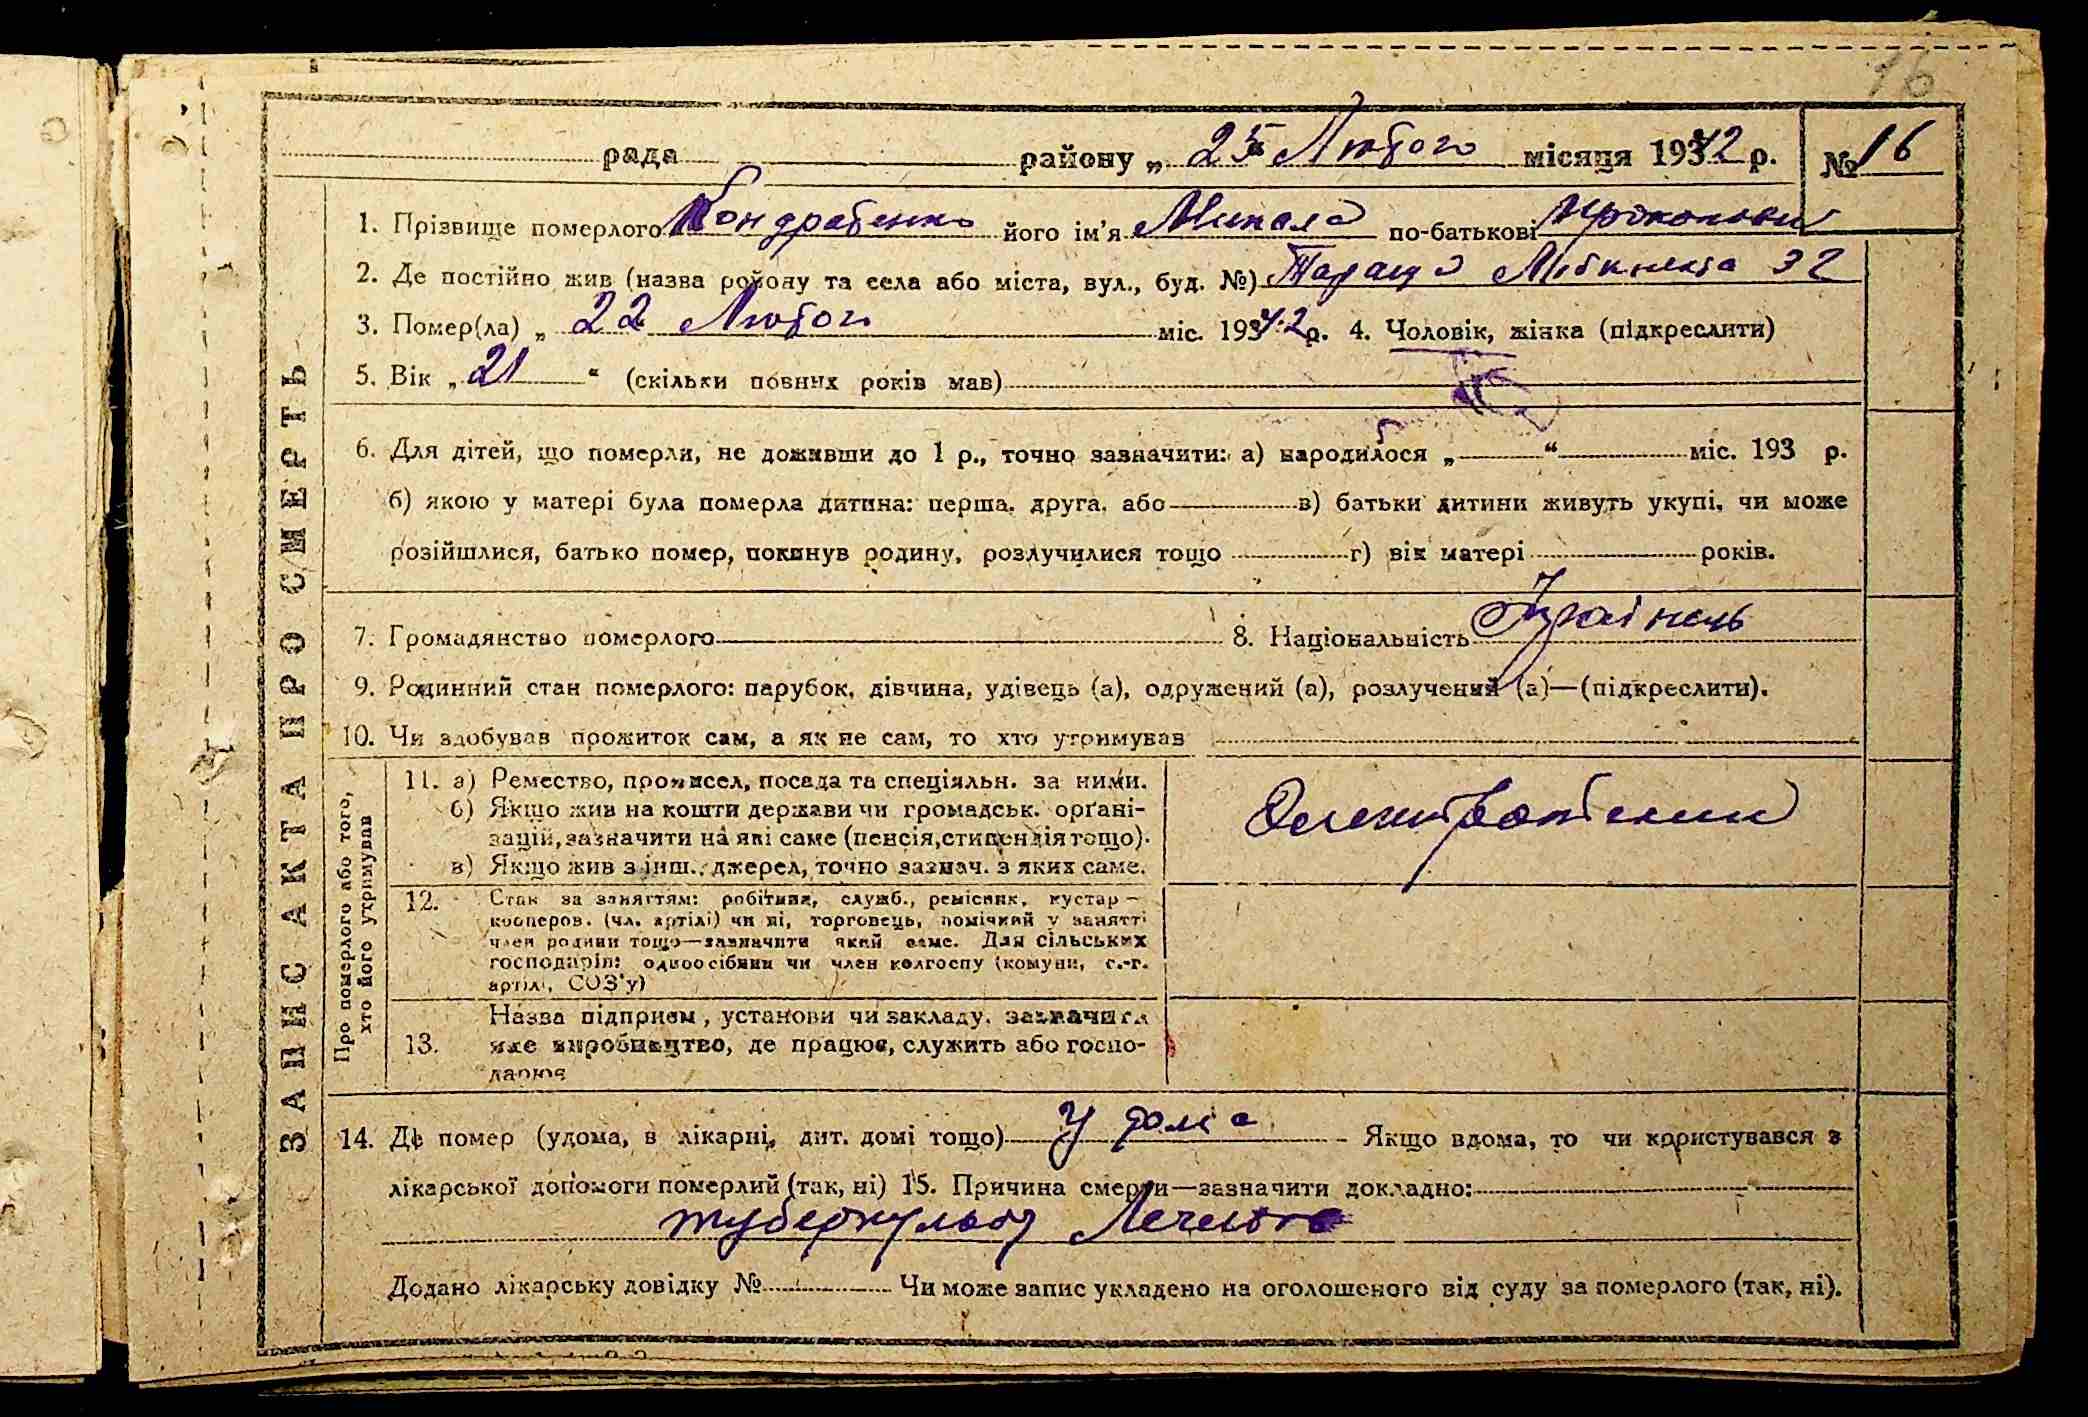 16
рада району „ 25 “ Лютого місяця 1942 р. № 16
1. Прізвище померлого Кондратенко його ім'я Микола по-батькові Прокопович
2. Де постійно жив (назва району та села або міста, вул., буд. №) Тараща Лібкнехта 32
3. Помер(ла) „ 22 Лютого міс. 1942 р. 4. Чоловік, жінка (підкреслити)
5. Вік „ 21 “ (скільки повних років мав)
6. Для дітей, що померли, не доживши до 1 р., точно зазначити: а) народилося „ “ міс. 193 р.
б) якою у матері була померла дитина: перша, друга, або в) батьки дитини живуть укупі, чи може
розійшлися, батько помер, покинув родину, розлучилися тощо г) вік матері років.
7. Громадянство померлого 8. Національність Українець
9. Родинний стан померлого: парубок, дівчина, удівець (а), одружений (а), розлучений (а)—(підкреслити).
10. Чи здобував прожиток сам, а як не сам, то хто утримував
ЗАПИС АКТА ПРО СМЕРТЬ
Про померлого або того,
хто його утримував
11. а) Ремество, промисел, посада та спеціяльн. за ними.
б) Якщо жив на кошти держави чи громадськ. орґані-
зацій, зазначити на які саме (пенсія, стипендія тощо).
в) Якщо жив з інш. джерел, точно зазнач. з яких саме.
12. Стан за заняттям: робітник, служб., ремісник, кустар-
кооперов. (чл. артілі) чи ні, торговець, помічний у занятті
член родини тощо—зазначити який саме. Для сільських
господарів: одноосібник чи член колгоспу (комуни, с.-г.
артілі, СОЗ'у)
13. Назва підприєм., установи чи закладу, зазначити
яке виробництво, де працює, служить або госпо-
дарює
14. Де помер (удома, в лікарні, дит. домі тощо) У дома - Якщо вдома, то чи користувався з
лікарської допомоги померлий (так, ні) 15. Причина смерти—зазначити докладно:
туберкульоз Легенів
Додано лікарську довідку № Чи може запис укладено на оголошеного від суду за померлого (так, ні).